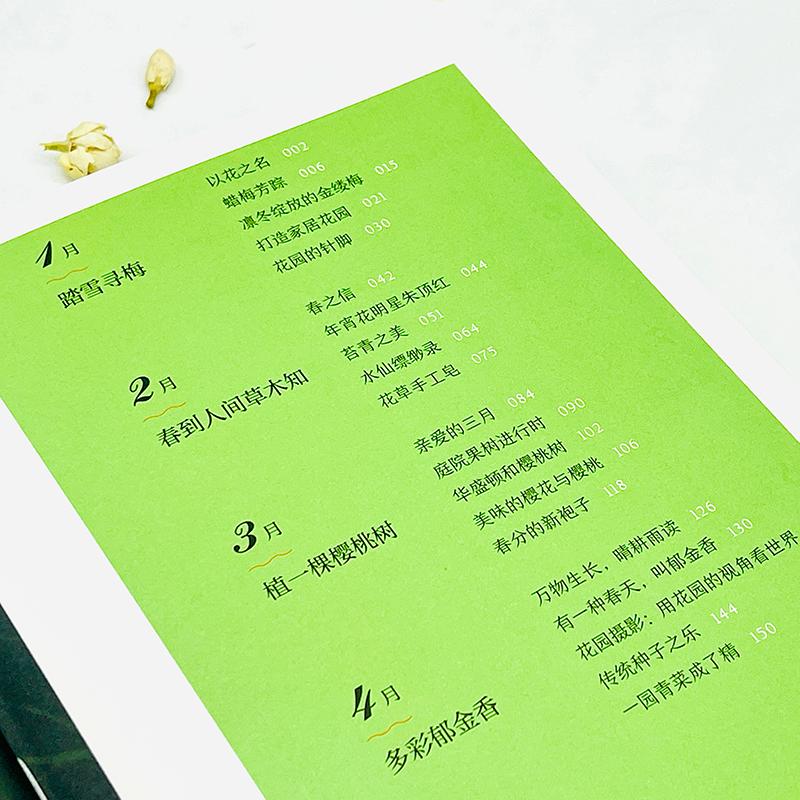 1月
踏雪寻梅
以花之名 002
蜡梅芳踪 006
凛冬绽放的金缕梅 015
打造家居花园 021
花园的针脚 030
2月
春到人间草木知
春之信 042
年宵花明星朱顶红 044
苔青之美 051
水仙缥缈录 064
花草手工皂 075
3月
植一棵樱桃树
亲爱的三月 084
庭院果树进行时 090
华盛顿和樱桃树 102
美味的樱花与樱桃 106
春分的新袍子 118
4月
多彩郁金香
万物生长，晴耕雨读 126
有一种春天，叫郁金香 130
花园摄影：用花园的视角看世界
传统种子之乐 144
一园青菜成了精 150